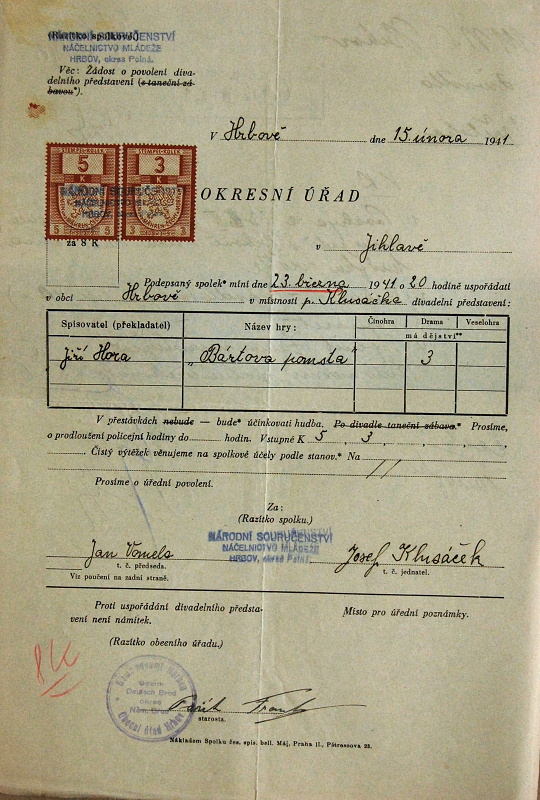 (Razítko spolkové)
NÁRODNÍ SOURUČENSTVÍ
NÁČELNICTVO MLÁDEŽE
HRBOV, okres Polná.
Věc: Žádost o povolení diva-
delního představení (s taneční zá-
bavou*).
V Hrbově dne 15. února 1941
STEMPEL-KOLEK
5
K
5 5
STEMPEL-KOLEK
3
K
3 3
NÁRODNÍ SOURUČENSTVÍ
NÁČELNICTVO MLÁDEŽE
HRBOV, okres Polná.
za 8 K
OKRESNÍ ÚŘAD
v Jihlavě
Podepsaný spolek* míní dne 23. března 1941 o 20 hodině uspořádati
v obci Hrbově v místnosti p. Klusáčka divadelní představení:
Spisovatel (překladatel) Název hry: Činohra Drama Veselohra
má dějství**
Jiří Hora „Bártova pomsta" 3
V přestávkách nebude — bude* účinkovati hudba. Po divadle taneční zábava.* Prosíme,
o prodloužení policejní hodiny do hodin. Vstupné K 5, 3,
Čistý výtěžek věnujeme na spolkové účely podle stanov.* Na
Prosíme o úřední povolení.
Za:
(Razítko spolku.)
NÁRODNÍ SOURUČENSTVÍ
NÁČELNICTVO MLÁDEŽE
HRBOV, okres Polná.
Jan Josef Klusáček
t. č. předseda. t. č. jednatel.
Viz poučení na zadní straně.
Proti uspořádání divadelního předsta-
vení není námitek.
Místo pro úřední poznámky.
(Razítko obecního úřadu.)
8 K
Bezirk
Deutsch Brod
okres
Něm. Brod
Obecní úřad Hrbov
starosta.
Nákladem Spolku čes. spis. bell. Máj, Praha II., Pštrossova 23.